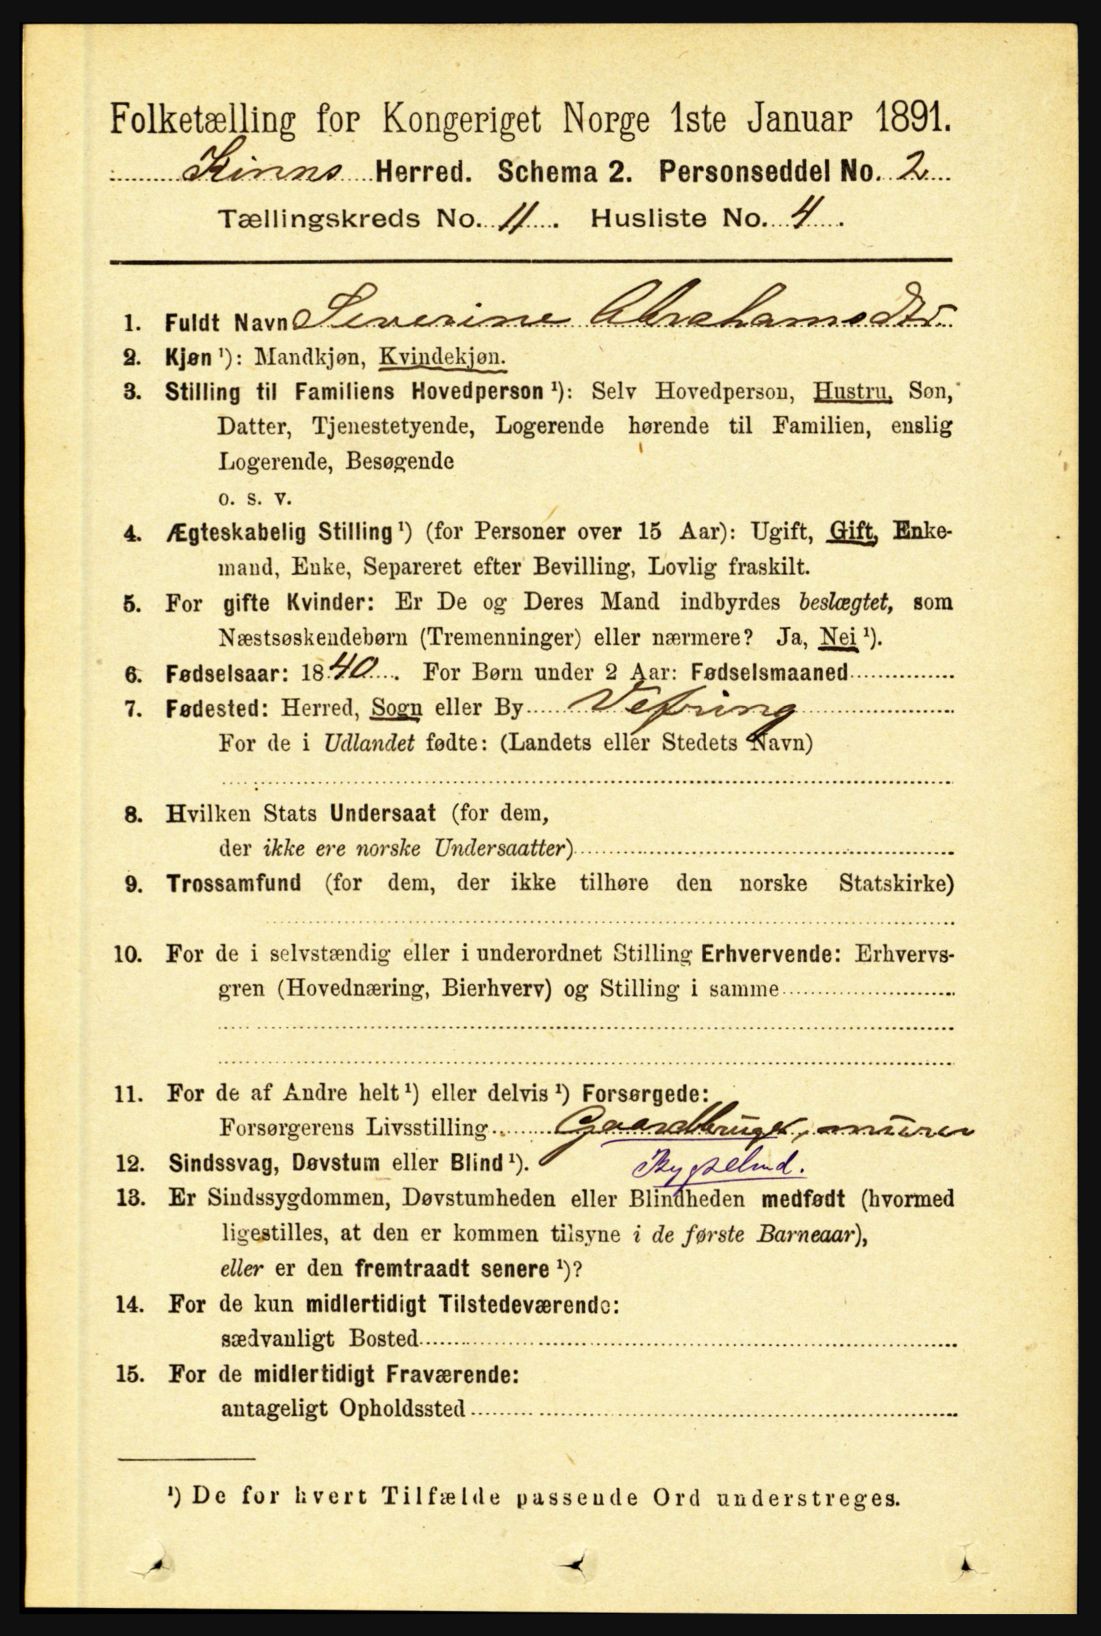 Folketælling for Kongeriget Norge 1ste Januar 1891.
Kinns Herred. Schema 2. Personseddel No. 2
Tællingskreds No. 11. Husliste No. 4.
1. Fuldt Navn Severine Abrahamsdtr.
2. Kjøn ¹): Mandkjøn, Kvindekjøn.
3. Stilling til Familiens Hovedperson ¹): Selv Hovedperson, Hustru, Søn,
Datter, Tjenestetyende, Logerende hørende til Familien, enslig
Logerende, Besøgende
o. s. v.
4. Ægteskabelig Stilling ¹) (for Personer over 15 Aar): Ugift, Gift, Enke-
mand, Enke, Separeret efter Bevilling, Lovlig fraskilt.
5. For gifte Kvinder: Er De og Deres Mand indbyrdes beslægtet, som
Næstsøskendebørn (Tremenninger) eller nærmere? Ja, Nei ¹).
6. Fødselsaar: 1840. For Børn under 2 Aar: Fødselsmaaned
7. Fødested: Herred, Sogn eller By Vefring
For de i Udlandet fødte: (Landets eller Stedets Navn)
8. Hvilken Stats Undersaat (for dem,
der ikke ere norske Undersaatter)
9. Trossamfund (for dem, der ikke tilhøre den norske Statskirke)
10. For de i selvstændig eller i underordnet Stilling Erhvervende: Erhvervs-
gren (Hovednæring, Bierhverv) og Stilling i samme
11. For de af Andre helt ¹) eller delvis ¹) Forsørgede:
Forsørgerens Livsstilling Gaardbruger, murer
12. Sindssvag, Døvstum eller Blind ¹).
13. Er Sindssygdommen, Døvstumheden eller Blindheden medfødt (hvormed
ligestilles, at den er kommen tilsyne i de første Barneaar),
eller er den fremtraadt senere ¹)?
14. For de kun midlertidigt Tilstedeværende:
sædvanligt Bosted
15. For de midlertidigt Fraværende:
antageligt Opholdssted
¹) De for hvert Tilfælde passende Ord understreges.